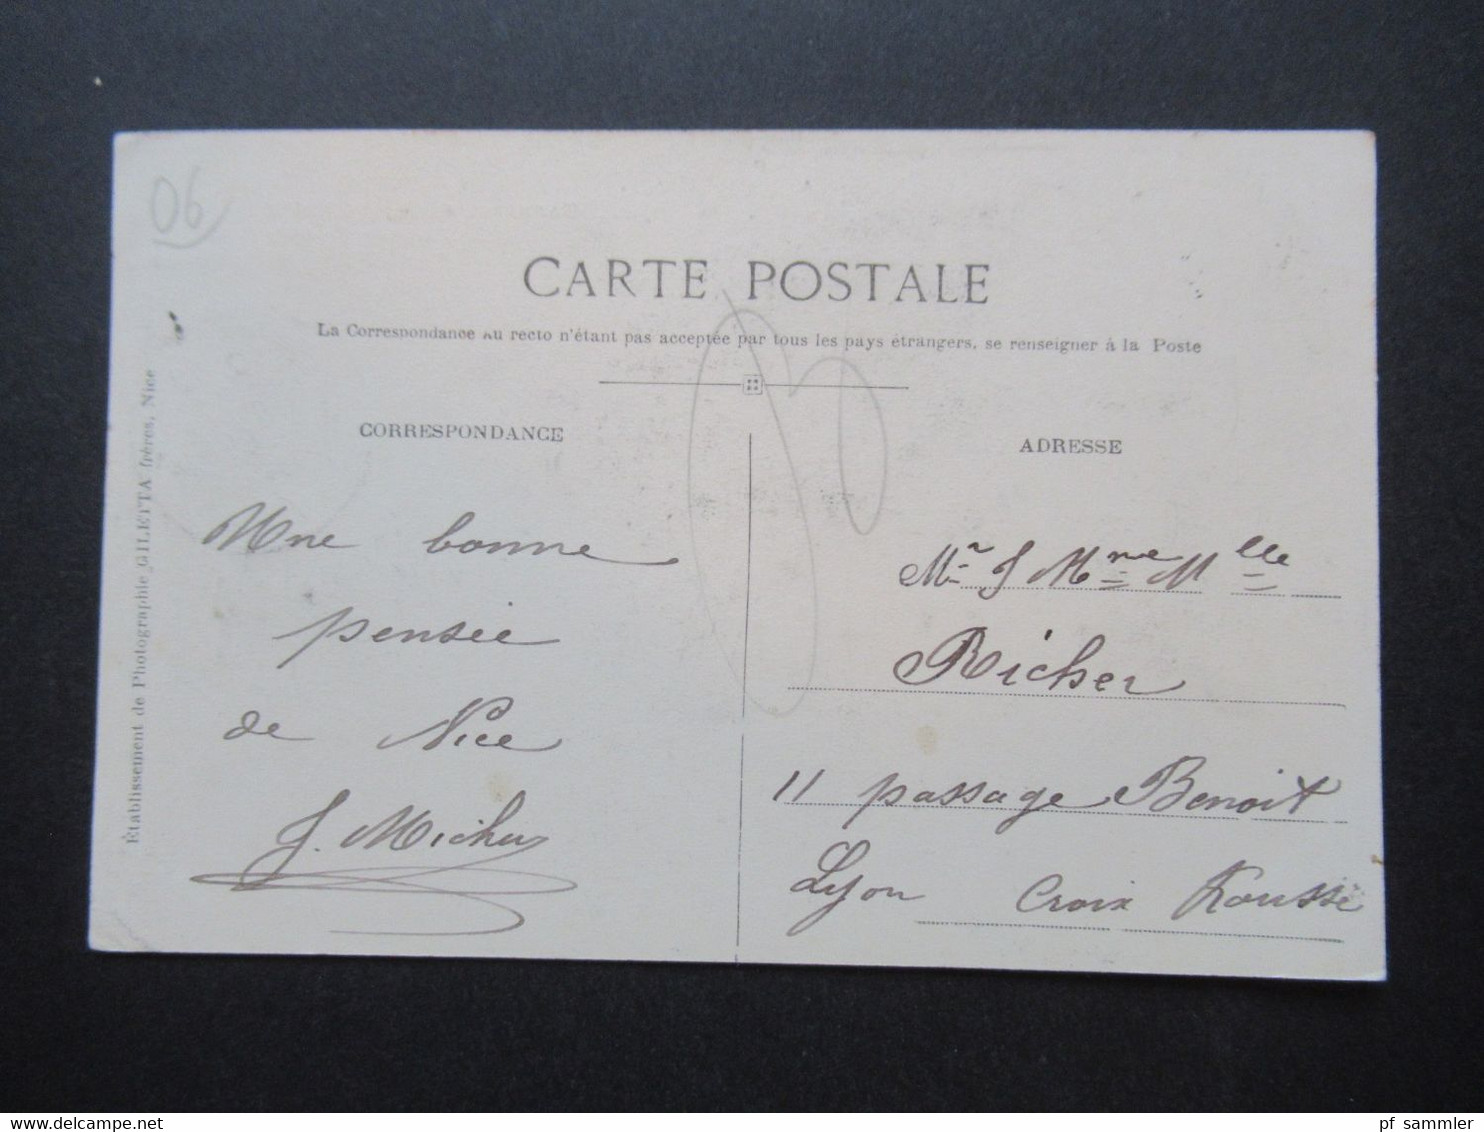 06
CARTE POSTALE
La Correspondance au recto n'étant pas acceptée par tous les pays étrangers, se renseigner à la Poste
CORRESPONDANCE
Une bonne
pensée
de Nice
J. Michu
ADRESSE
Mr & Mme Mlle
Richer
11 passage Benoit
Lyon Croix Rousse
Établissement de Photographie GILETTA frères, Nice
pf_sammler
www.delcampe.net